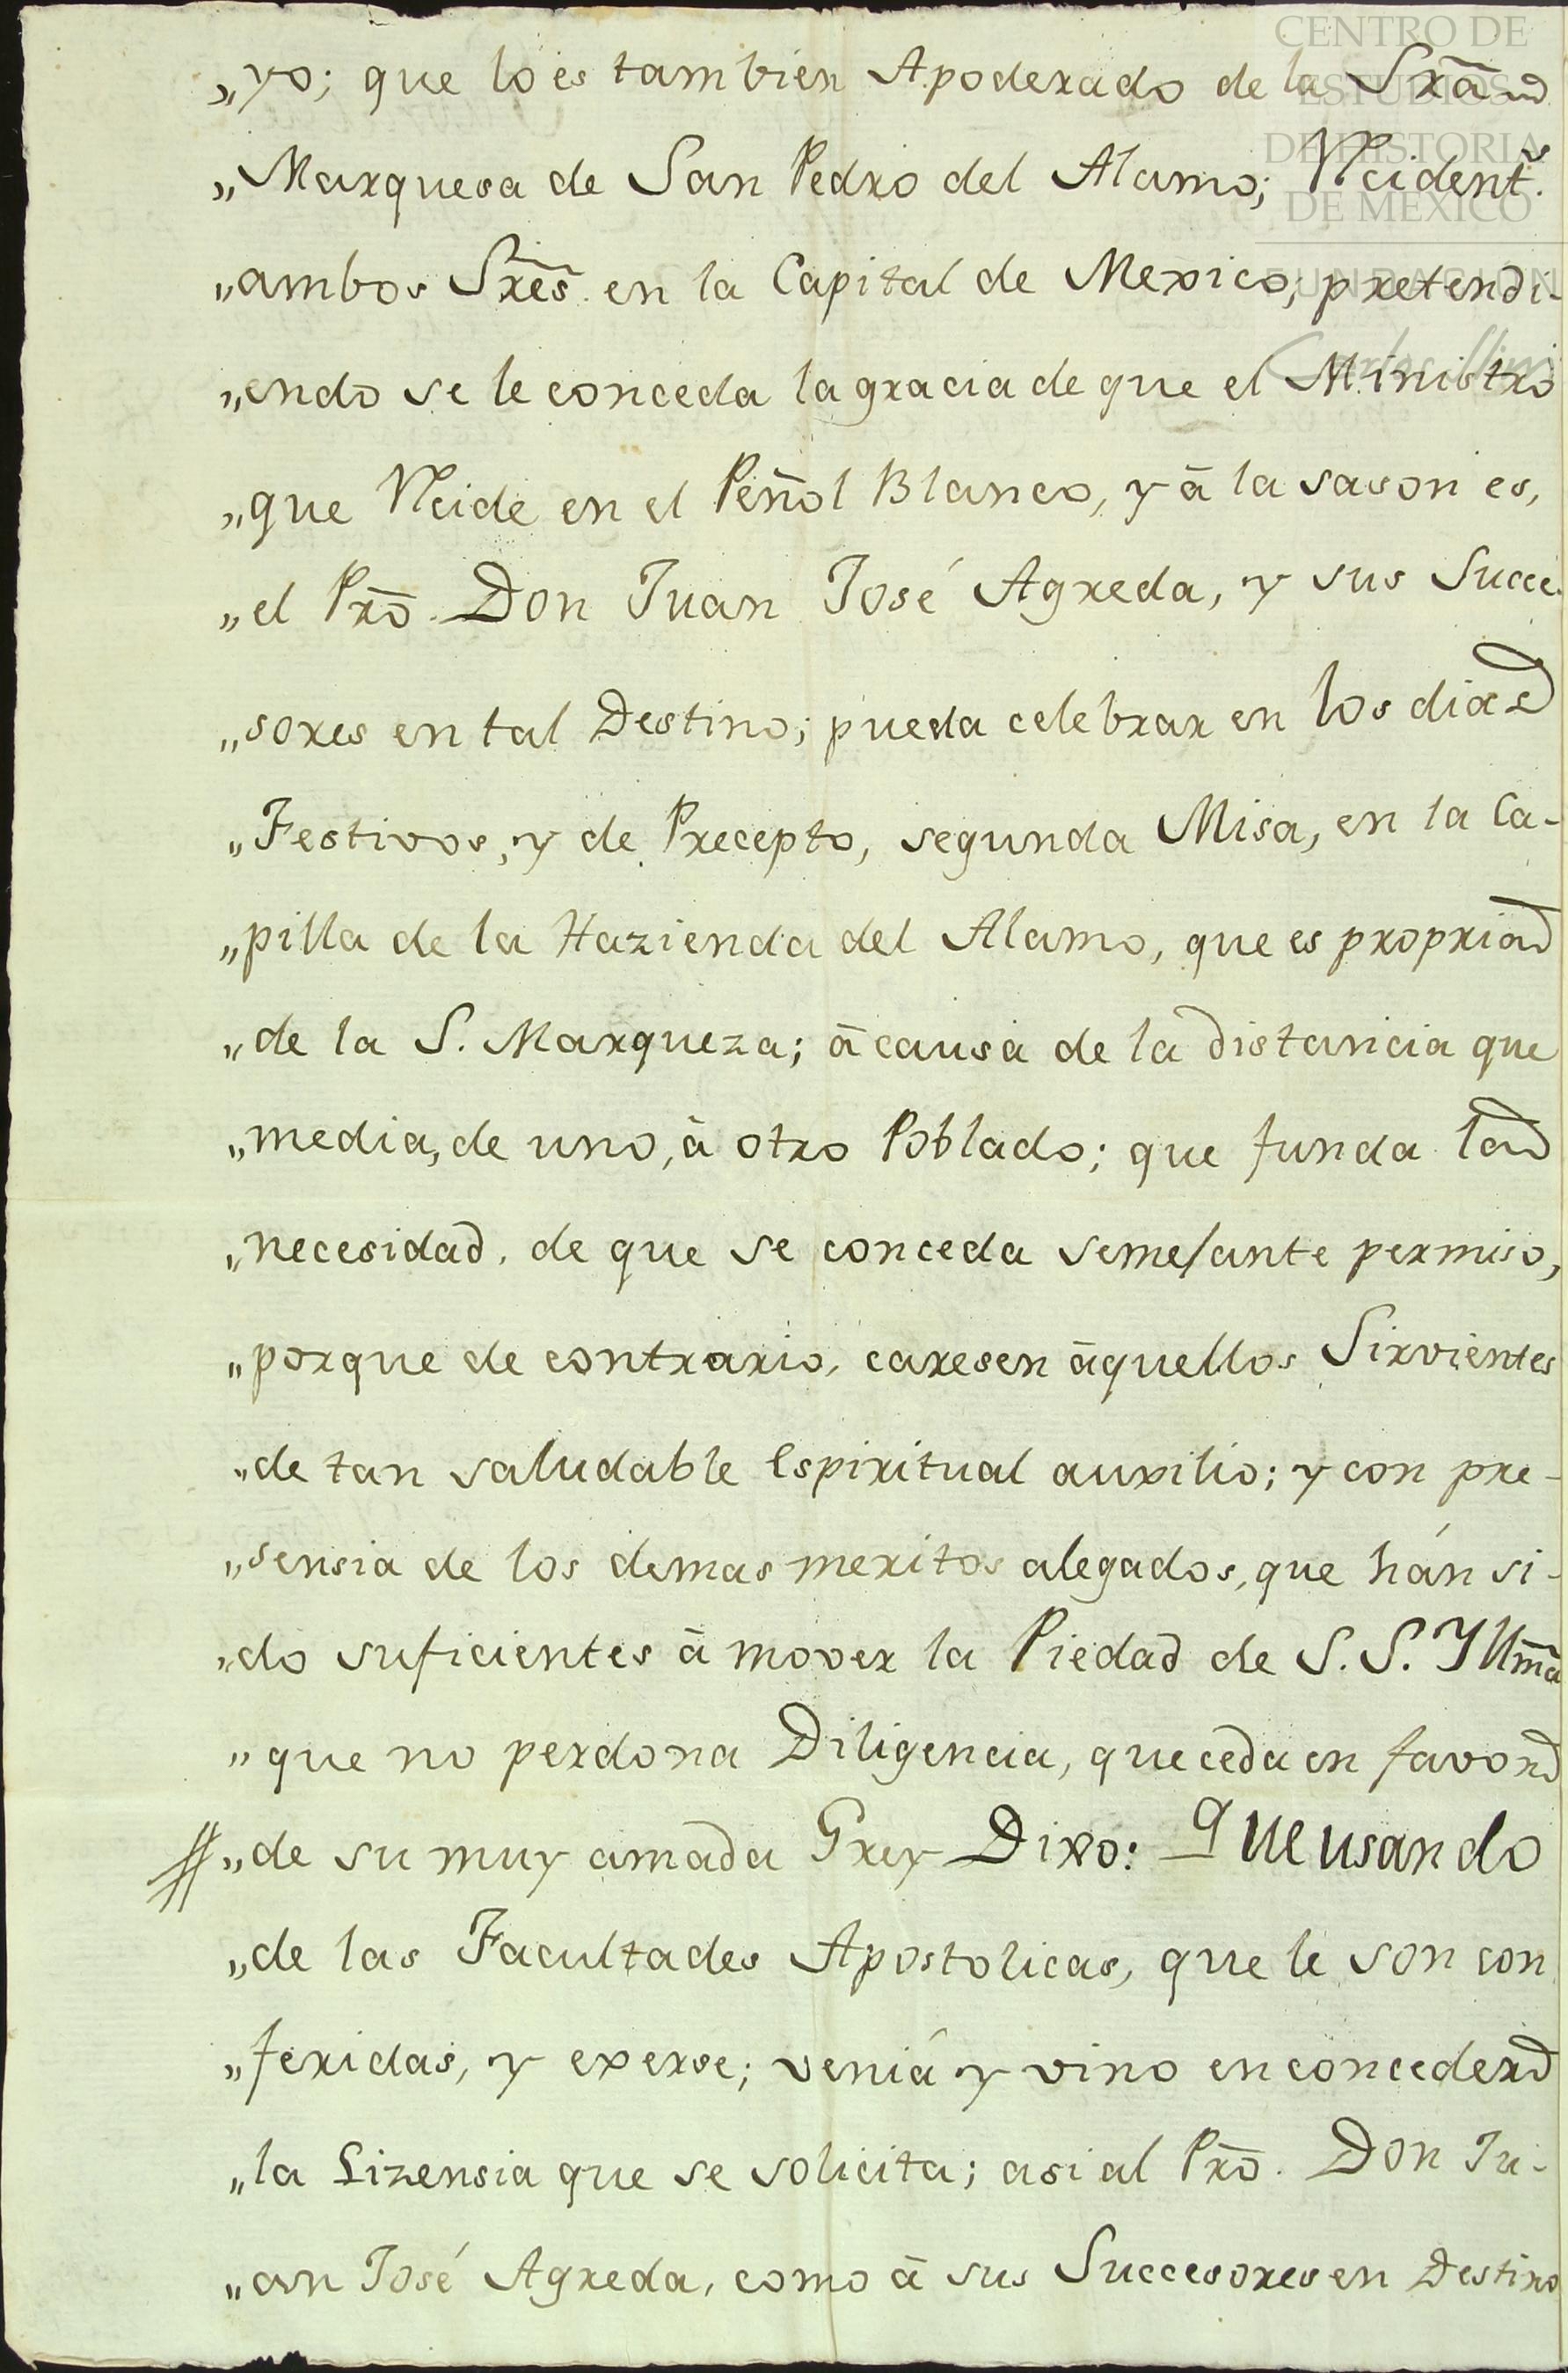 CENTRO DE
ESTUDIOS
DE HISTORIA
DE MEXICO
FUNDACIÓN
„yo; que lo es tambien Apoderado de la Srã
„Marquesa de San Pedro del Alamo; Rcident.s
„ambos Sres̃. en la Capital de Mexico; pretendi-
„endo se le conceda la gracia de que el Ministro
„que Rcide en el Peñol Blanco, y â la sason es,
„el Prõ. Don Juan José Agreda, y sus Succe-
„sores en tal Destino; pueda celebrar en los dias
„Festivos, y de Precepto, segunda Misa, en la Ca-
„pilla de la Hazienda del Alamo, que es propria
„de la S. Marqueza; â causa de la distancia que
„media, de uno, à otro Poblado; que funda la
„necesidad, de que se conceda semejante permiso,
„porque de contrario, caresen âquellos Sirvientes
„de tan saludable Espiritual auxilio; y con pre-
„sensia de los demas meritos alegados, que hán si-
„do suficientes â mover la Piedad de S. S. Yllmã
„que no perdona Diligencia, que ceda en favor
„de su muy amada Grey Dixo: Que usando
„de las Facultades Apostolicas, que le son con
„feridas, y exerse; veniá y vino en conceder
„la Lizensia que se solicita; asi al Prõ. Don Ju-
„an José Agreda, como â sus Succesores en Destino